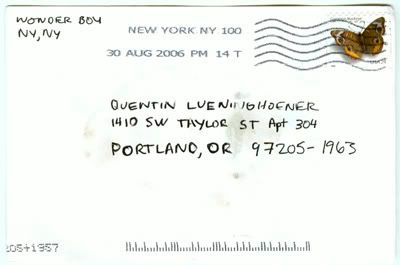 WONDER BOY
NY, NY
NEW YORK NY 100
30 AUG 2006 PM 14 T
QUENTIN
1410 SW TAYLOR ST Apt 304
PORTLAND, OR 97205-1963